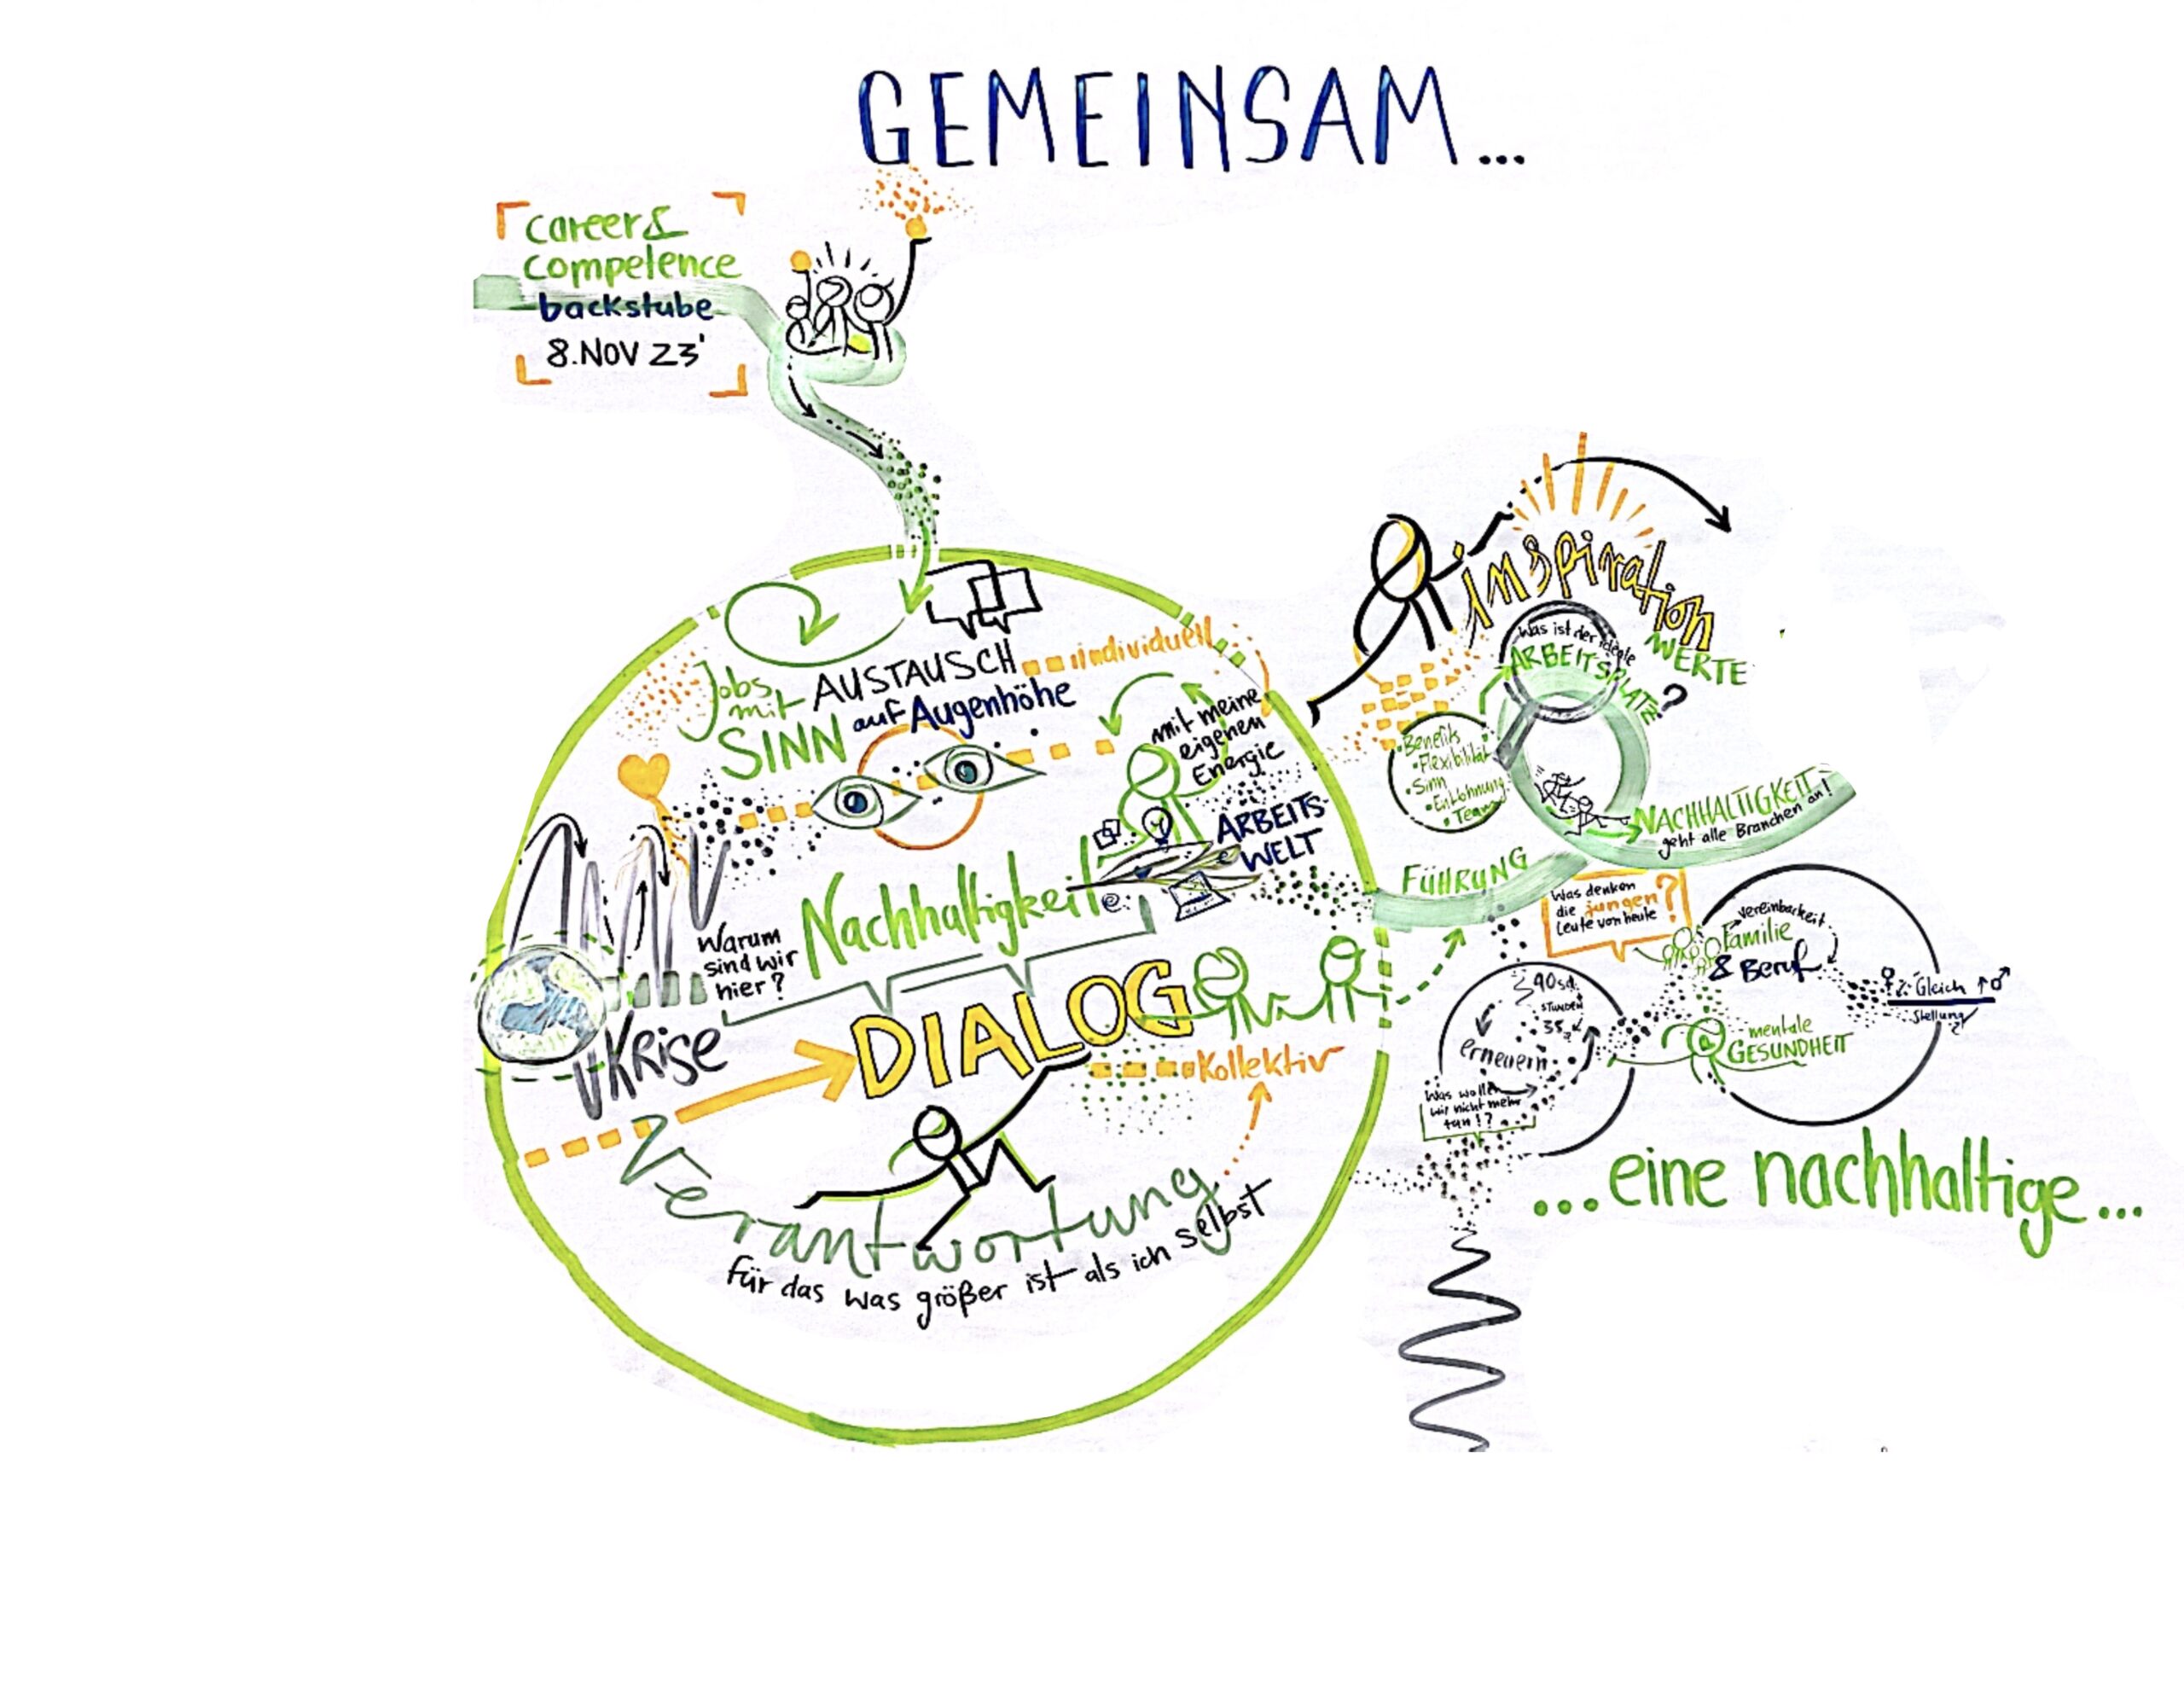 GEMEINSAM...
career &
competence
backstube
8. NOV 23'
Jobs
mit
SINN
AUSTAUSCH
auf Augenhöhe
individuell
mit meine
eigenen
Energie
ARBEITS-
WELT
Nachhaltigkeit
Warum
sind wir
hier?
Krise
DIALOG
Kollektiv
Verantwortung
für das was größer ist als ich selbst
inspiration
WERTE
Was ist der ideale
ARBEITSPLATZ?
• Benefits
• Flexibilität
• Sinn
• Entlohnung
• Team
NACHHALTIGKEIT
geht alle Branchen an!
FÜHRUNG
Was denken
die jungen?
Leute von heute
Vereinbarkeit
Familie
& Beruf
Gleich
Stellung
mentale
GESUNDHEIT
STUNDEN
erneuern
Was wollen
wir nicht mehr
tun!?
...eine nachhaltige...